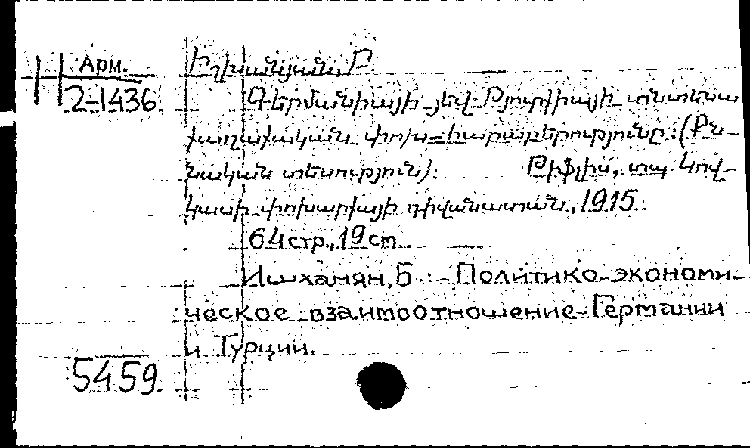 Арм.
2-1436
Իշխանյան, Բ.
Գերմանիայի յեվ Թյուրքիայի տնտեսա
քաղաքական փոխ-հարաբերությունը: (Քն-
նական տեսություն): Թիֆլիս, տպ. Կով-
կասի փոխարքայի դիվանատան, 1915
64 стр., 19 cm
Ишханян, Б. Политико-экономи-
ческое взаимоотношение Германии
и Турции.
5459